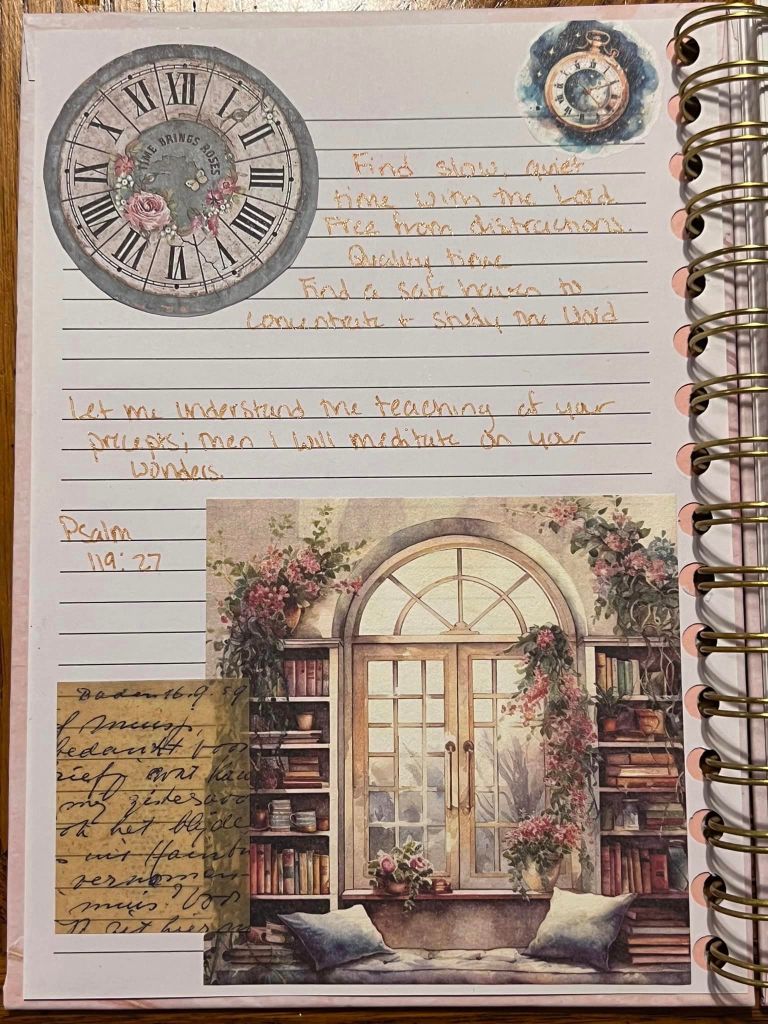 XII
I
II
III
IIII
V
VI
VII
VIII
IX
X
XI
TIME BRINGS ROSES
Find slow, quiet
time with the Lord
Free from distractions.
Quality time
Find a safe haven to
concentrate + study the Word
Let me understand the teaching of your
precepts; then I will meditate on your
wonders.
Psalm
119:27
Baden 16.9.59
bedankt voor
rief, want
my zuster
het blijde
uit
vernomen
muis. Voor